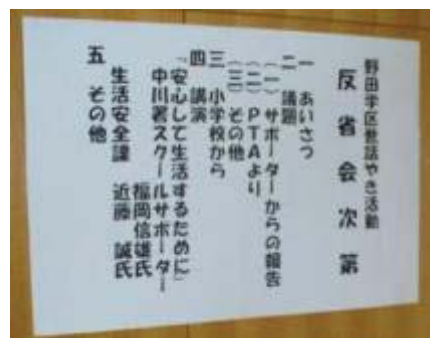 野田学区世話やき活動
反省会次第
一 あいさつ
二 議題
(一)サポーターからの報告
(二)PTAより
(三)その他
三 小学校から
四 講演
「安心して生活するために」
中川署スクールサポーター
福岡信雄氏
生活安全課 近藤 誠氏
五 その他